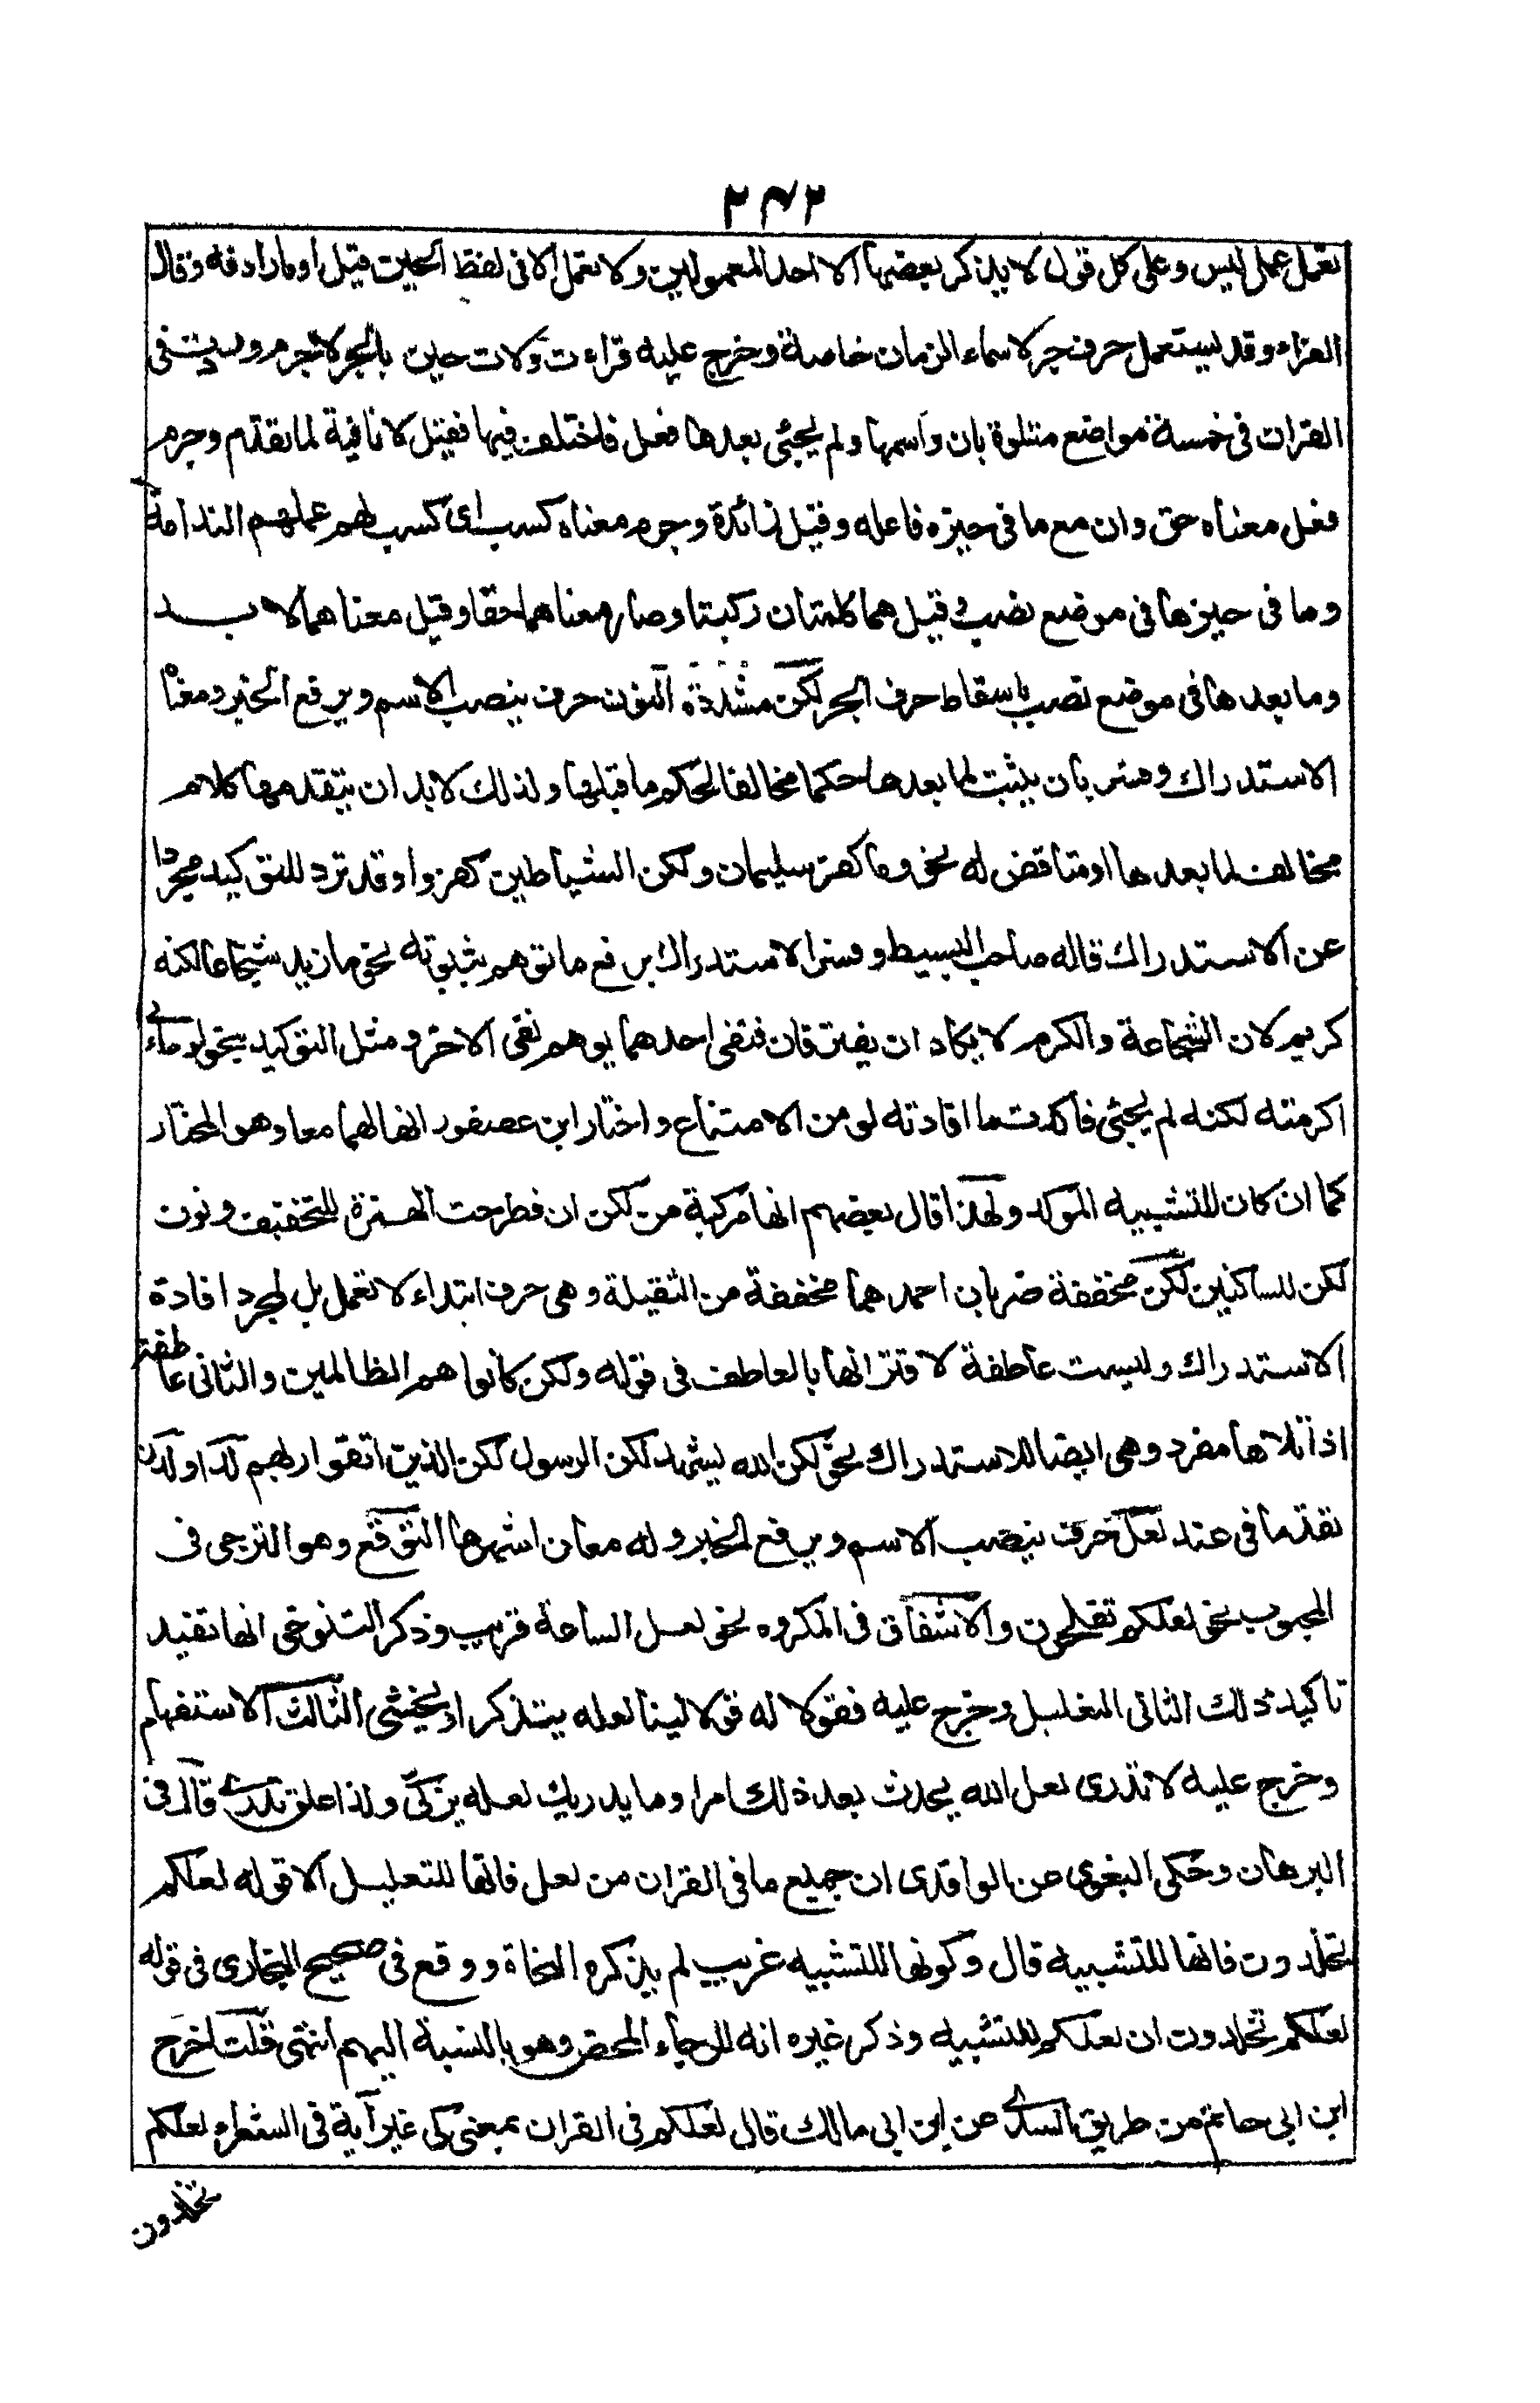 ٢٤٢
تعمل عمل ليس وعلى كل قول لا يذكر بعدها الا احد المعمولين ولا تعمل الا فى لفظ الحين قيل او ما رادفه وقال
الفراء وقد يستعمل حرف جر لاسماء الزمان خاصة وخرج عليه قراءت ولات حين بالجر لاجرم وردت فى
القران فى خمسة مواضع متلوة بان واسمها ولم يجئى بعدها فعل فاختلف فيها فقيل لا نافية لما تقدم وجرم
فعل معناه حق وان مع ما فى حيزه فاعله وقيل زائدة وجرم معناه كسب اى كسب لهم عملهم الندامة
وما فى حيزها فى موضع نصب وقيل هما كلمتان ركبتا وصار معناهما حقا وقيل معناهما لا بد
وما بعدها فى موضع نصب باسقاط حرف الجر لكن مشددة النون حرف ينصب الاسم ويرفع الخبر ومعناه
الاستدراك وفسر بان يثبت لما بعدها حكما مخالفا لحكم ما قبلها ولذلك لا بد ان يتقدمها كلام
مخالف لما بعدها او مناقض له نحو وما كفر سليمان ولكن الشياطين كفروا وقد ترد للتوكيد مجردا
عن الاستدراك قاله صاحب البسيط وفسر الاستدراك برفع ما توهم ثبوته نحو ما زيد شجاعا لكنه
كريم لان الشجاعة والكرم لا يكاد ان يفترقان فنفى احدهما يوهم نفى الاخر ومثل التوكيد بنحو لو جاءنى
اكرمته لكنه لم يجئى فاكدت ما افادته لو من الامتناع واختار ابن عصفور انها لهما معا وهو المختار
كما ان كان للتشبيه الموكد ولهذا قال بعضهم انها مركبة من لكن ان فطرحت الهمزة للتخفيف ونون
لكن للساكنين لكن مخففة ضربان احدهما مخففة من الثقيلة وهى حرف ابتداء لا تعمل بل لمجرد افادة
الاستدراك وليست عاطفة لاقترانها بالعاطف فى قوله ولكن كانوا هم الظالمين والثانى عاطفة
اذا تلاها مفرد وهى ايضا للاستدراك نحو لكن الله يشهد لكن الرسول لكن الذين اتقوا ربهم لدا ولدن
تقدما فى عند لعل حرف ينصب الاسم ويرفع الخبر وله معان اشهرها التوقع وهو الترجى فى
المحبوب نحو لعلكم تفلحون والاشفاق فى المكروه نحو لعل الساعة قريب وذكر التنوخى انها تفيد
تاكيد ذلك الثانى التعليل وخرج عليه فقولا له قولا لينا لعله يتذكر او يخشى الثالث الاستفهام
وخرج عليه لا تدرى لعل الله يحدث بعد ذلك امرا وما يدريك لعله يزكى ولذا علق تدرى قال فى
البرهان وحكى البغوى عن الواقدى ان جميع ما فى القران من لعل فانها للتعليل الا قوله لعلكم
تخلدون فانها للتشبيه قال وكونها للتشبيه غريب لم يذكره النحاة ووقع فى صحيح البخارى فى قوله
لعلكم تخلدون ان لعلكم للتشبيه وذكر غيره انه للرجاء المحض وهو بالنسبة اليهم انتهى قلت اخرج
ابن ابى حاتم من طريق السدى عن ابن ابى مالك قال لعلكم فى القران بمعنى كى غير آية فى الشعراء لعلكم
تخلدون